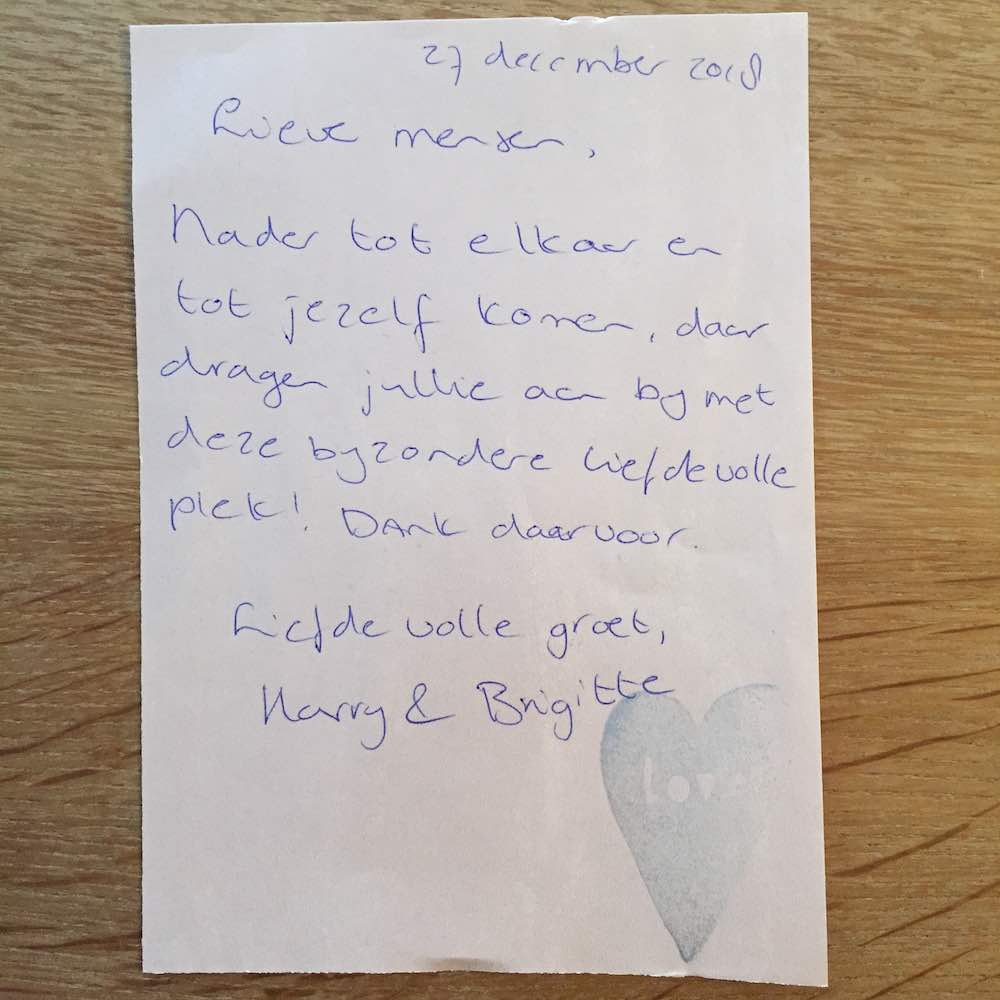 27 december 2018
Lieve mensen,
Nader tot elkaar en
tot jezelf komen, daar
dragen jullie aan bij met
deze bijzondere liefdevolle
plek! Dank daarvoor.
Liefdevolle groet,
Harry & Brigitte
Love